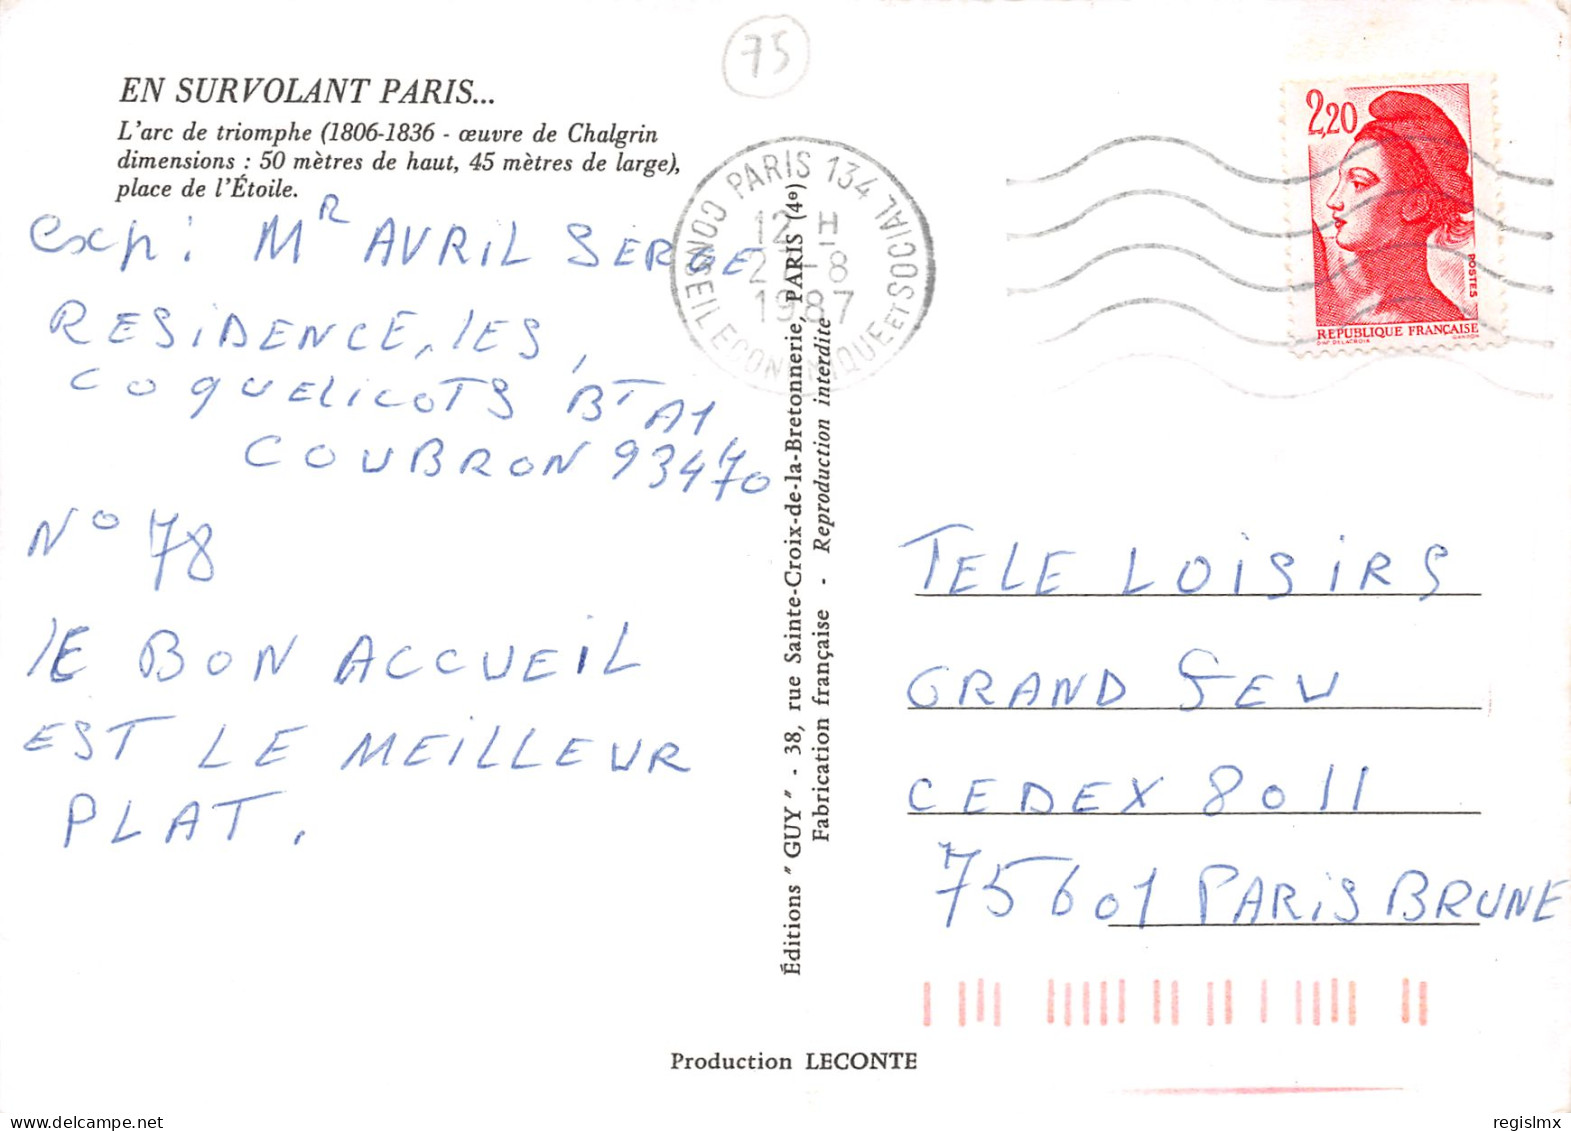 75
EN SURVOLANT PARIS...
L'arc de triomphe (1806-1836 - œuvre de Chalgrin
dimensions : 50 mètres de haut, 45 mètres de large),
place de l'Étoile.
exp: MR AVRIL SERGE
RESIDENCE, LES
COQUELICOTS BT A1
COUBRON 93470
N° 78
LE BON ACCUEIL
EST LE MEILLEUR
PLAT.
PARIS 134
CONSEIL ECONOMIQUE ET SOCIAL
12 H
-8
1987
Éditions "GUY" - 38, rue Sainte-Croix-de-la-Bretonnerie, PARIS (4e)
Fabrication française - Reproduction interdite
2,20
POSTES
REPUBLIQUE FRANÇAISE
D'AP. DELACROIX GANDON
TELE LOISIRS
GRAND JEU
CEDEX 8011
75601 PARIS BRUNE
Production LECONTE
regislmx